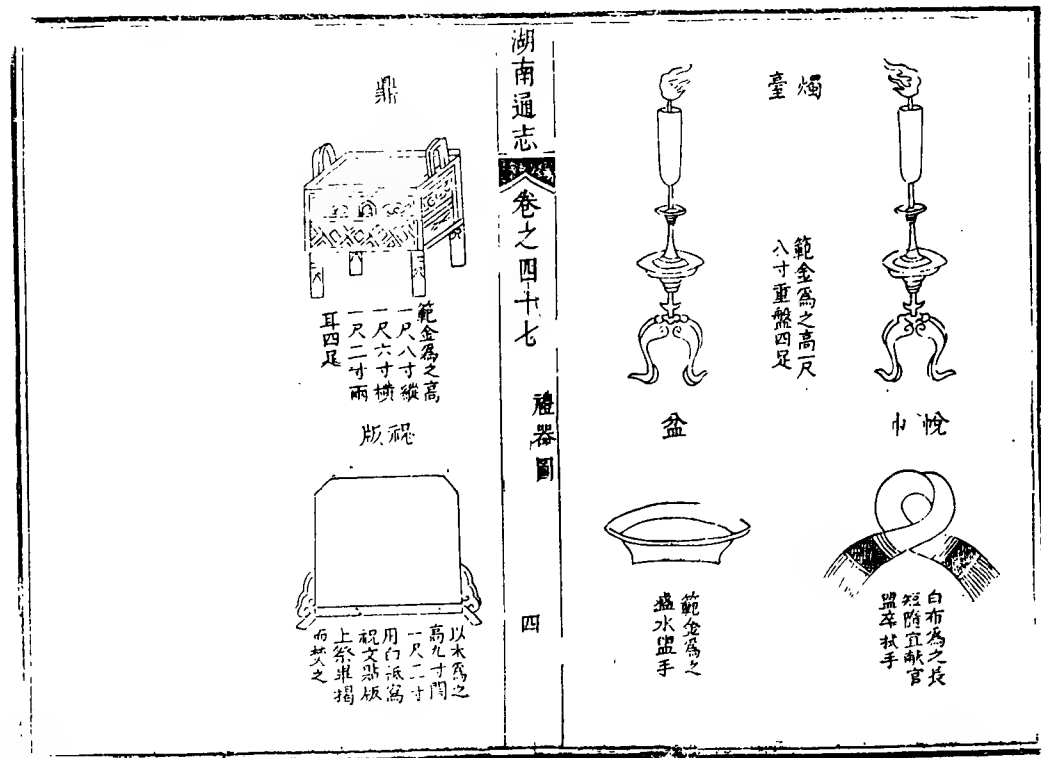 燭臺
範金爲之高一尺
八寸重盤四足
帨巾
白布爲之長
短隨宜獻官
盥卒拭手
盆
範金爲之
盛水盥手
湖南通志
卷之四十七
禮器圖
四
鼎
範金爲之高
一尺八寸縱
一尺六寸橫
一尺二寸兩
耳四足
祝版
以木爲之
高九寸闊
一尺二寸
用白紙寫
祝文貼版
上祭畢揭
而焚之